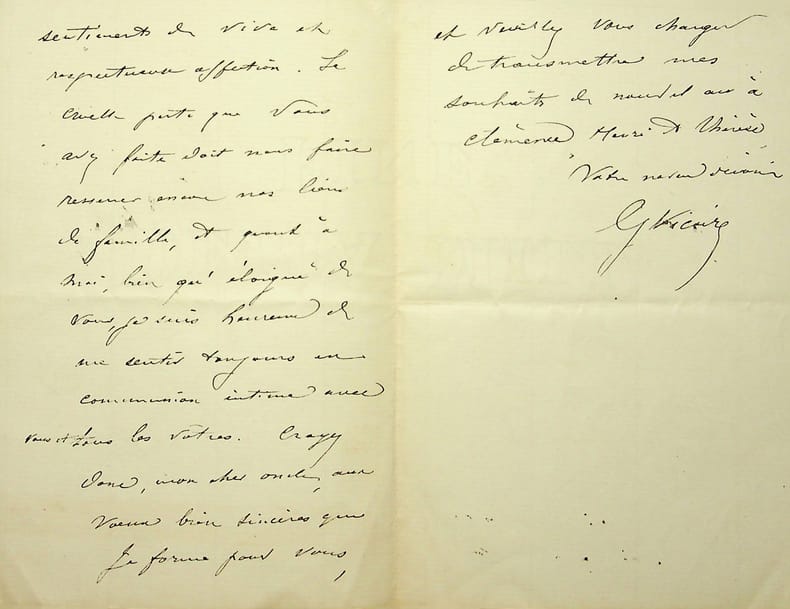 sentiments de vive et
respectueuse affection. La
cruelle perte que vous
avez faite doit nous faire
resserrer encore nos liens
de famille, et quand à
moi, bien qu'éloigné de
vous, je suis heureux de
me sentir toujours en
communion intime avec
vous et tous les vôtres. Croyez
donc, mon cher oncle, aux
voeux bien sincères que
je forme pour vous,
et veuillez vous charger
de transmettre mes
souhaits de nouvel an à
Clémence Henri & Thérèse
Votre neveu dévoué
G Vicaire